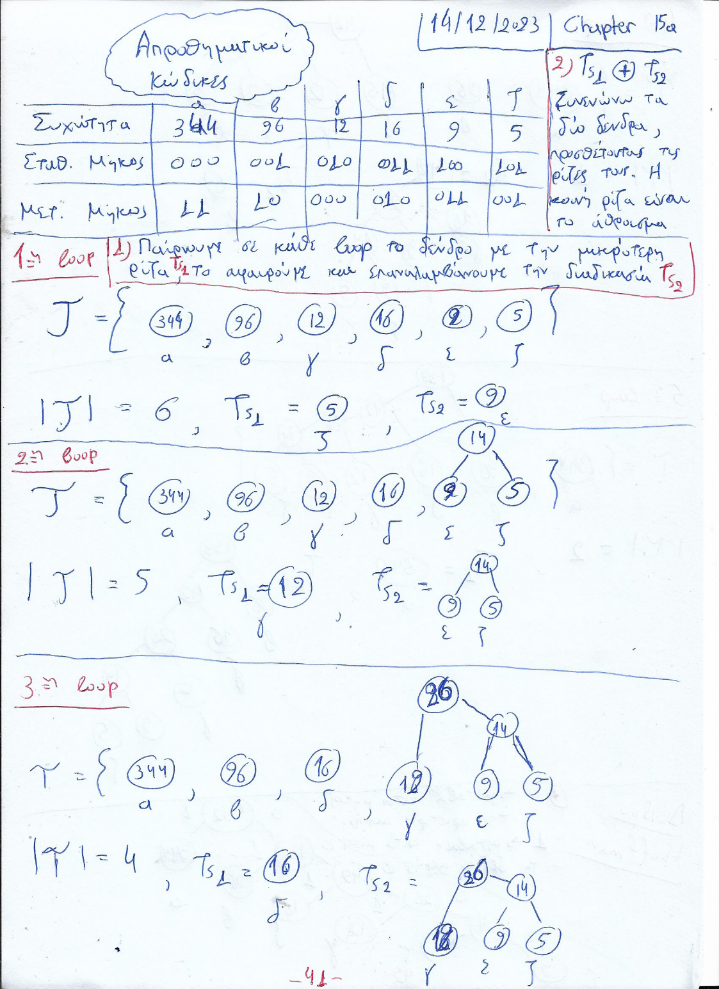 14/12/2023 Chapter 15α
Απροθηματικοί
Κώδικες
α β γ δ ε ζ
Συχνότητα 344 96 12 16 9 5
Σταθ. Μήκος 000 001 010 011 100 101
Μετ. Μήκως 11 10 000 010 011 001
2) Ts1 + Ts2
Συνενώνω τα
δύο δένδρα,
προσθέτοντας τις
ρίζες τους. Η
κοινή ρίζα είναι
το άθροισμα
1η loop
1) Παίρνουμε σε κάθε loop το δένδρο με την μικρότερη
ρίζα Ts1, το αφαιρούμε και επαναλαμβάνουμε την διαδικασία Ts2
T = { 344, 96, 12, 16, 9, 5 }
α β γ δ ε ζ
|T| = 6, Ts1 = 5, Ts2 = 9
ζ ε
2η loop
14
T = { 344, 96, 12, 16, 9 5 }
α β γ δ ε ζ
|T| = 5, Ts1 = 12, Ts2 = 14
γ
9 5
ε ζ
3η loop
26
14
T = { 344, 96, 16, 12 9 5
α β δ γ ε ζ
|T| = 4, Ts1 = 16, Ts2 = 26
δ
14
12 9 5
γ ε ζ
-41-